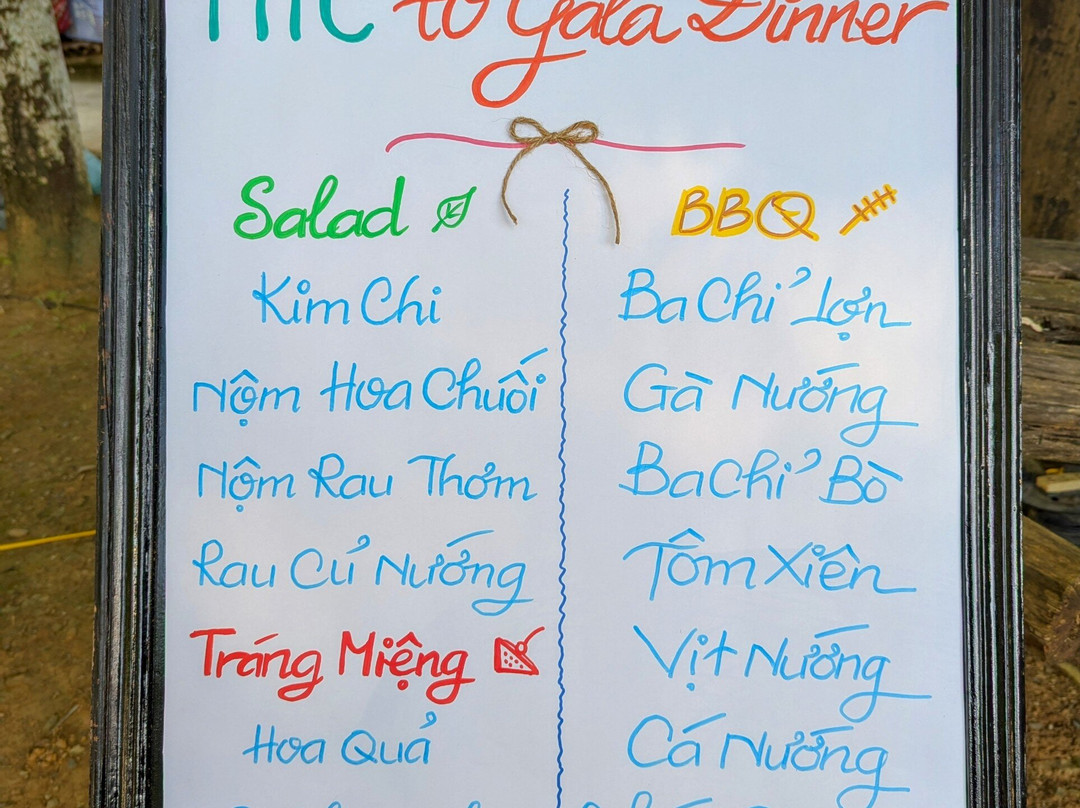 to Gala Dinner
Salad
Kim Chi
Nộm Hoa Chuối
Nộm Rau Thơm
Rau Củ Nướng
Tráng Miệng
Hoa Quả
BBQ
Ba Chỉ Lợn
Gà Nướng
Ba Chỉ Bò
Tôm Xiên
Vịt Nướng
Cá Nướng